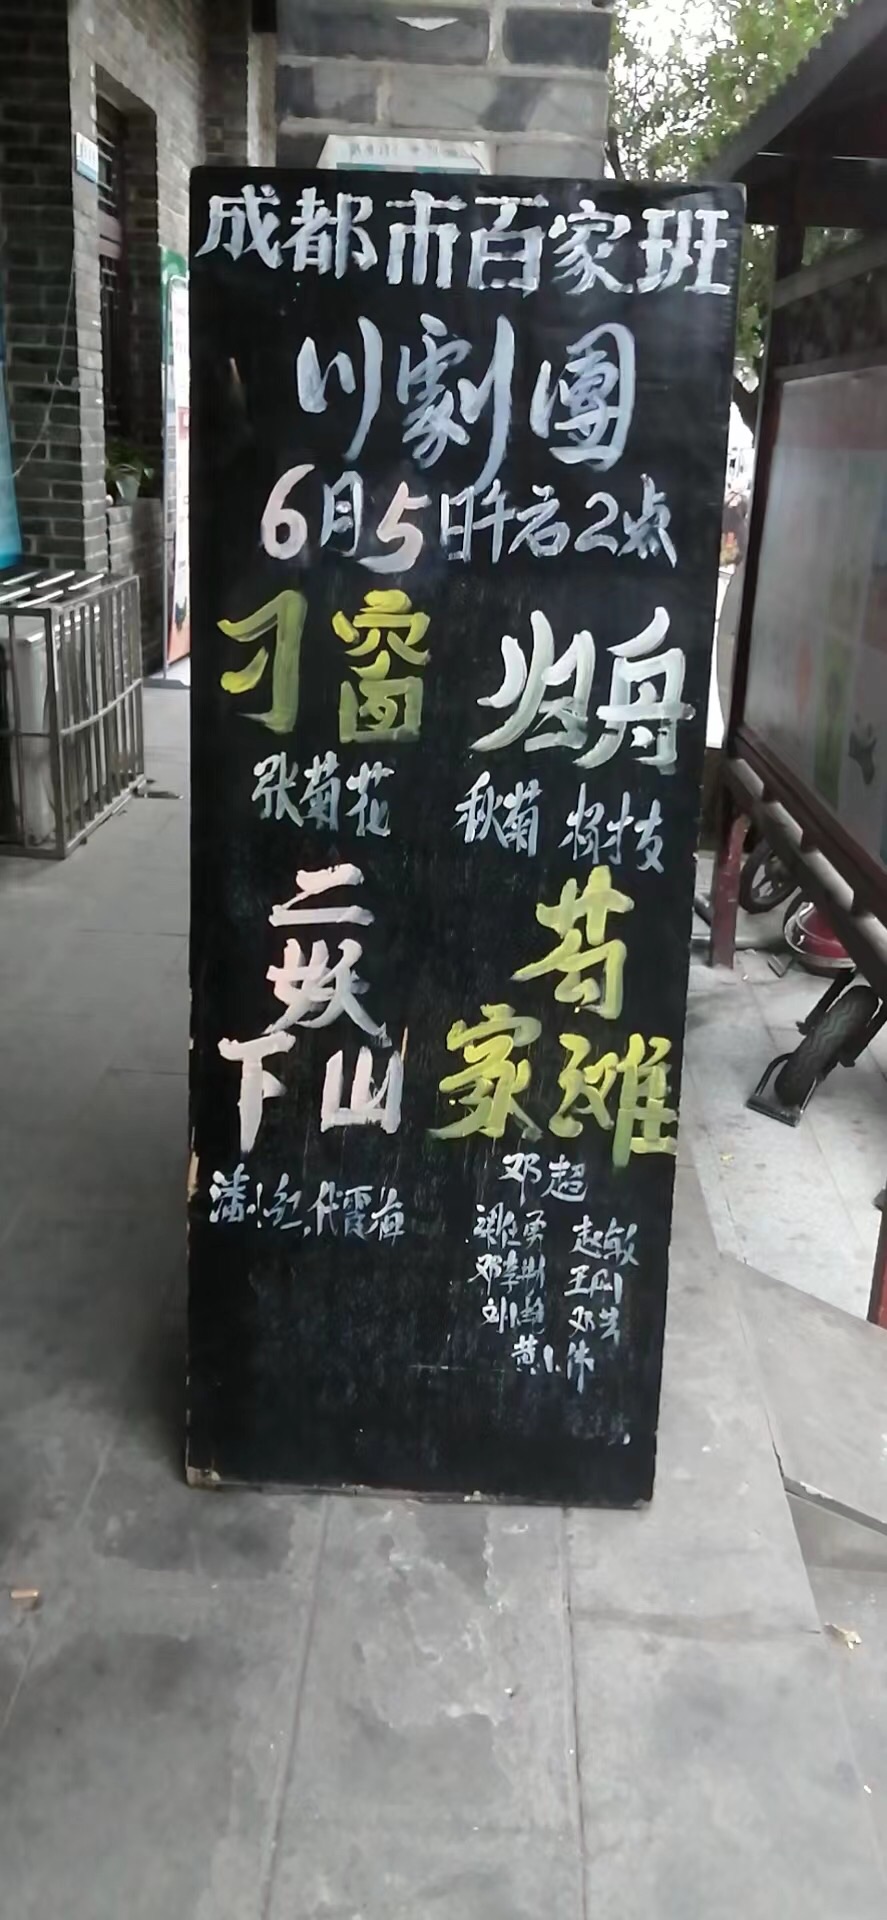 成都市百家班
川劇團
6月5日午后2点
刁窗
张菊花
归舟
秋菊 杨技
二妖
下山
潘小红,代霞
芶
家滩
邓超
梁仕勇 赵敏
邓李彬 王刚
刘小艳 邓芸
黄小伟